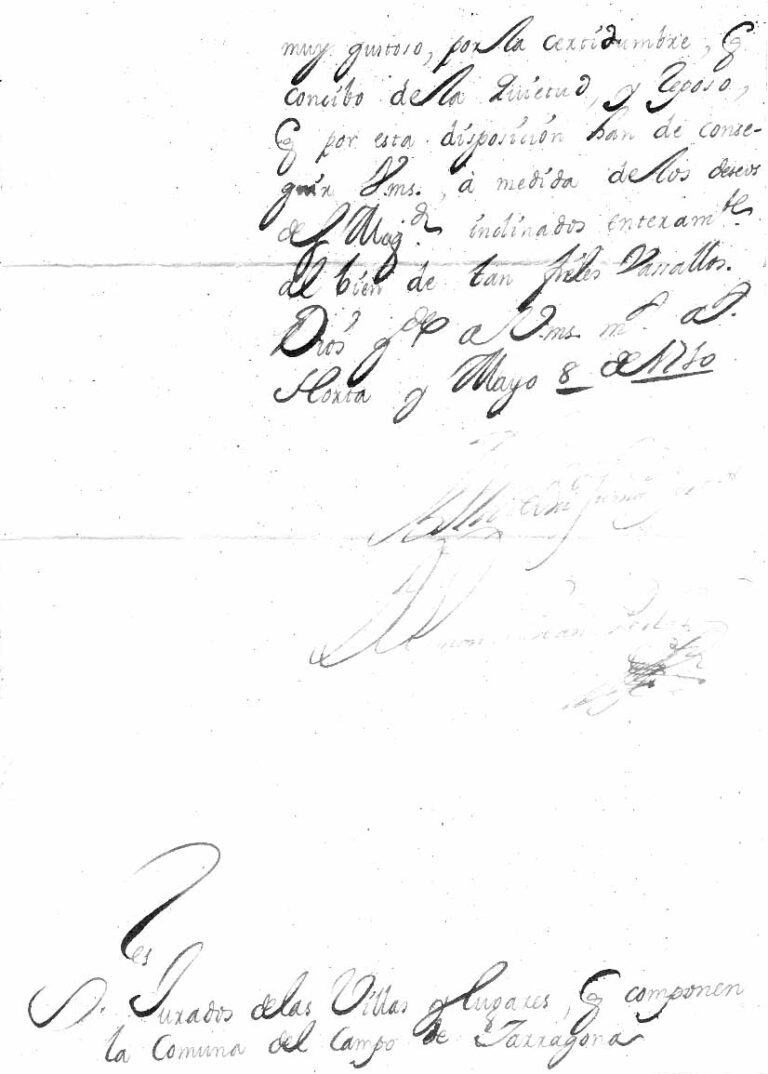 muy gustoso, por la certidumbre, q
concibo de la Quietud, y reposo,
q por esta disposición han de conse-
guir V.ms., à medida de los deseos
de S. Mag.d inclinados enteram.te
al bien de tan fieles Vasallos.
Dios g.de a V.ms. m.s a.s
Horta y Mayo 8 de 1710
S.res Jurados de las Villas y lugares, q componen
la Comuna del Campo de Tarragona